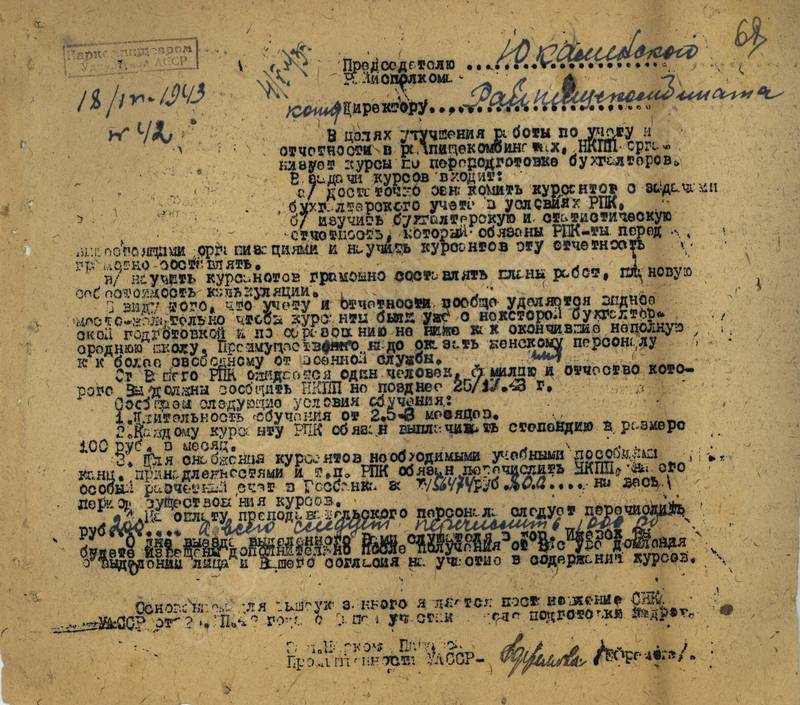 68
Наркомпищепром
УАССР
18/IV-1943
№42
Председателю ...Юкаменского
Райисполкома
копия Директору...Райпищекомбината
В целях улучшения работы по учету и
отчетности в райпищекомбинатах, НКПП орга-
низует курсы по переподготовке бухгалтеров.
В задачи курсов входит:
а/ достаточно ознакомить курсантов с задачами
бухгалтерского учета в условиях РПК.
б/ изучить бухгалтерскую и статистическую
отчетность, которай обязаны РПК-ты перед
организациями и научить курсантов эту отчетность
грамотно составлять.
в/ научить курсантов грамотно составлять планы работ, плановую
себестоимость калькуляции.
В виду того, что учету и отчетности вообще уделяется заднее
место-желательно чтобы курсанты были уже с некоторой бухгалтер-
ской подготовкой и по образованию не ниже как окончившие неполную
среднюю школу. Преимущественно надо оказать женскому персоналу
и к более свободному от военной службы.
От Вашего РПК ожидается один человек, фамилию и отчество кото-
рого Вы должны сообщить НКПП не позднее 25/IV.43 г.
Сообщаем следующие условия обучения:
1.Длительность обучения от 2,5-3 месяцев.
2.Каждому курсанту РПК обязан выплачивать стипендию в размере
100 руб. в месяц.
3. Для снабжения курсантов необходимыми учебными пособиями
канц. принадлежностями и т.п. РПК обязан перечислить НКПП, на его
особый расчетный счет в Госбанке руб 800.... на весь
период существования курсов.
На оплату преподавательского персонала следует перечислить
руб 200.... а всего следует перечислить 1000 р
О дне выезда выделенного Вами слушателя в гор. Ижевск Вы
будете извещены дополнительно после получения от Вас уведомления
о выделении лица и Вашего согласия на участие в содержании курсов.
Основанием для вышеуказанного является постановление СНК
УАССР от года подготовки кадров.
Промышленности УАССР-